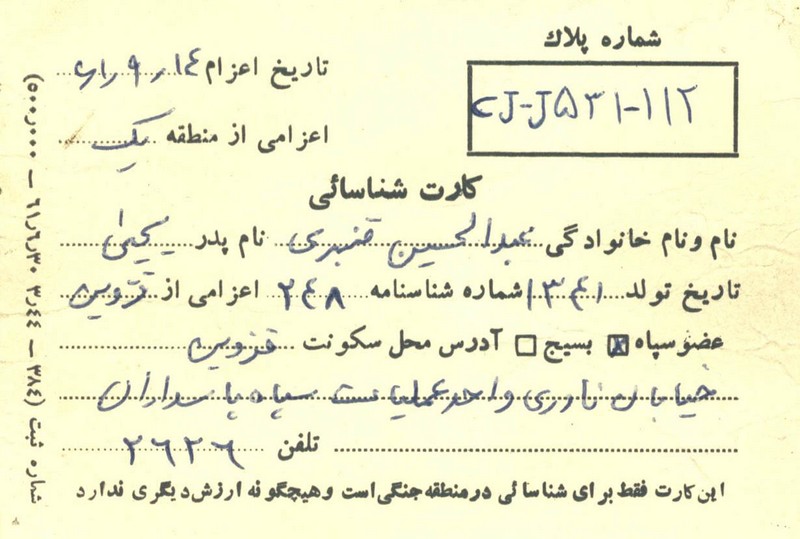 شماره پلاك
CJ-J۵۳۱-۱۱۲
تاریخ اعزام ۱۴ر۹ر
اعزامی از منطقه یک
کارت شناسائی
نام ونام خانوادگی عبدالحسین قنبری نام پدر یحیی
تاریخ تولد ۱۳۴۱ شماره شناسنامه ۲۴۸ اعزامی از قزوین
عضو سپاه بسیج آدرس محل سکونت قزوین
خیابان نادری واحد عملیات سپاه پاسداران
تلفن ۲۶۲۶
این کارت فقط برای شناسائی در منطقه جنگی است و هیچگونه ارزش دیگری ندارد
شماره ثبت (۳۸۴ – ۳٫۴۴ ۶۱٫۶٫۳۰ – ۵۰۰٫۰۰۰)